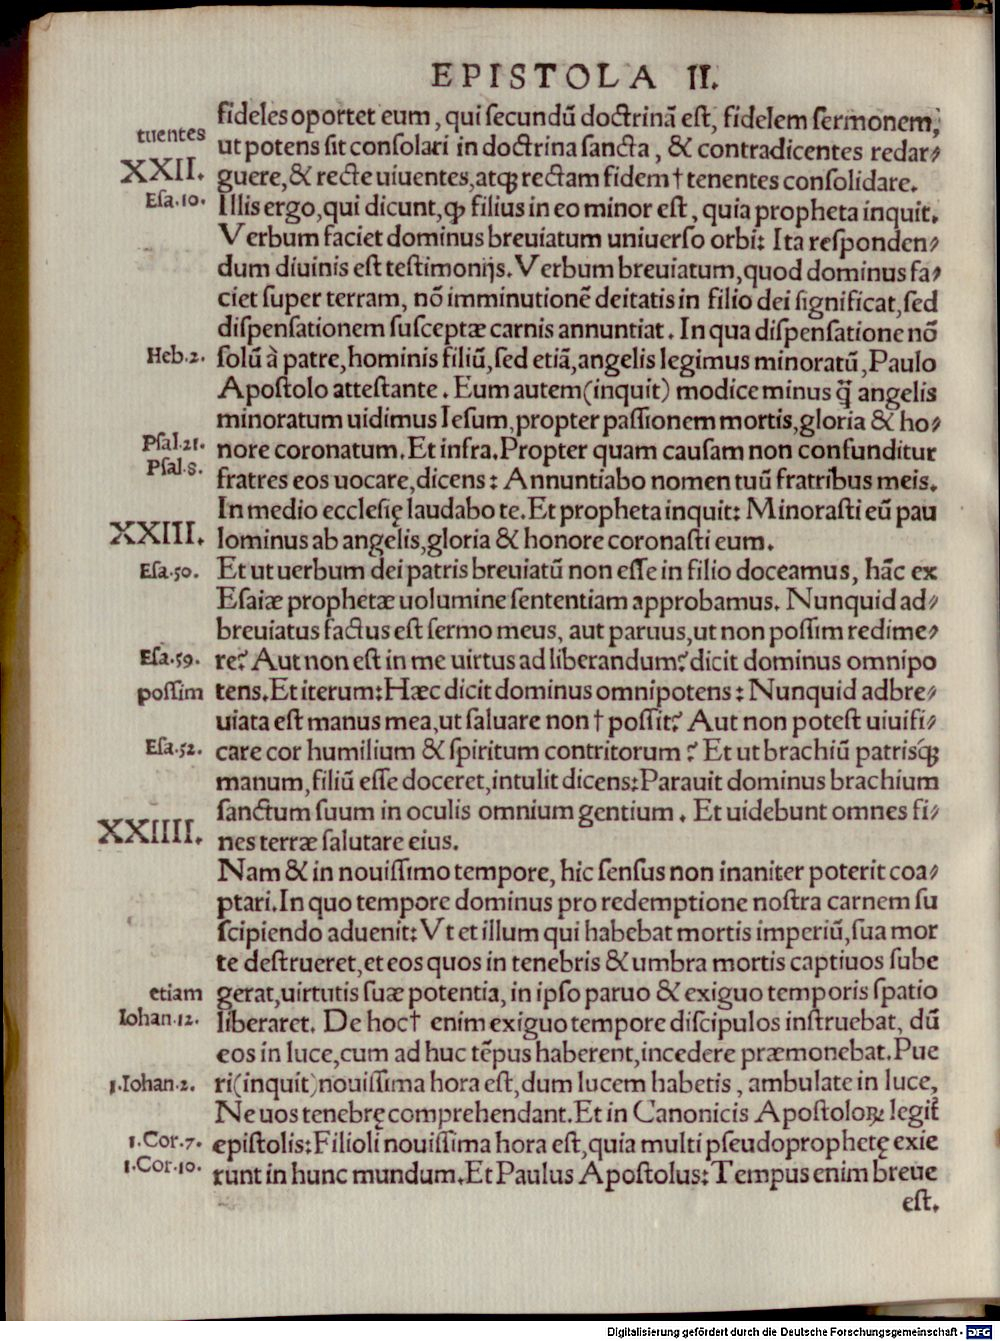 EPISTOLA II.
fideles oportet eum, qui secundũ doctrinã est, fidelem sermonem,
tuentes
ut potens sit consolari in doctrina sancta, & contradicentes redar⸗
XXII.
guere, & recte uiuentes, atqꝫ rectam fidem † tenentes consolidare.
Esa.10.
Illis ergo, qui dicunt, ꝙ filius in eo minor est, quia propheta inquit.
Verbum faciet dominus breuiatum uniuerso orbi: Ita responden⸗
dum diuinis est testimonijs. Verbum breuiatum, quod dominus fa⸗
ciet super terram, nõ imminutionẽ deitatis in filio dei significat, sed
dispensationem susceptæ carnis annuntiat. In qua dispensatione nõ
Heb.2.
solũ à patre, hominis filiũ, sed etiã, angelis legimus minoratũ, Paulo
Apostolo attestante. Eum autem (inquit) modice minus q̃ angelis
minoratum uidimus Iesum, propter passionem mortis, gloria & ho⸗
Psal.21.
nore coronatum. Et infra. Propter quam causam non confunditur
Psal.8.
fratres eos uocare, dicens: Annuntiabo nomen tuũ fratribus meis.
In medio ecclesię laudabo te. Et propheta inquit: Minorasti eũ pau
XXIII.
lominus ab angelis, gloria & honore coronasti eum.
Esa.50.
Et ut uerbum dei patris breuiatũ non esse in filio doceamus, hãc ex
Esaiæ prophetæ uolumine sententiam approbamus. Nunquid ad⸗
breuiatus factus est sermo meus, aut paruus, ut non possim redime⸗
Esa.59.
re? Aut non est in me uirtus ad liberandum? dicit dominus omnipo
possim
tens. Et iterum: Hæc dicit dominus omnipotens: Nunquid adbre⸗
uiata est manus mea, ut saluare non † possit? Aut non potest uiuifi⸗
Esa.52.
care cor humilium & spiritum contritorum? Et ut brachiũ patrisqꝫ
manum, filiũ esse doceret, intulit dicens: Parauit dominus brachium
sanctum suum in oculis omnium gentium. Et uidebunt omnes fi⸗
XXIIII.
nes terræ salutare eius.
Nam & in nouissimo tempore, hic sensus non inaniter poterit coa⸗
ptari. In quo tempore dominus pro redemptione nostra carnem su
scipiendo aduenit: Vt et illum qui habebat mortis imperiũ, sua mor
te destrueret, et eos quos in tenebris & umbra mortis captiuos sube
etiam
gerat, uirtutis suæ potentia, in ipso paruo & exiguo temporis spatio
Iohan.12.
liberaret. De hoc † enim exiguo tempore discipulos instruebat, dũ
eos in luce, cum ad huc tẽpus haberent, incedere præmonebat. Pue
1.Iohan.2.
ri (inquit) nouissima hora est, dum lucem habetis, ambulate in luce,
Ne uos tenebrę comprehendant. Et in Canonicis Apostoloꝝ legit̃
1.Cor.7.
epistolis: Filioli nouissima hora est, quia multi pseudoprophetę exie
1.Cor.10.
runt in hunc mundum. Et Paulus Apostolus: Tempus enim breue
est.
Digitalisierung gefördert durch die Deutsche Forschungsgemeinschaft - DFG